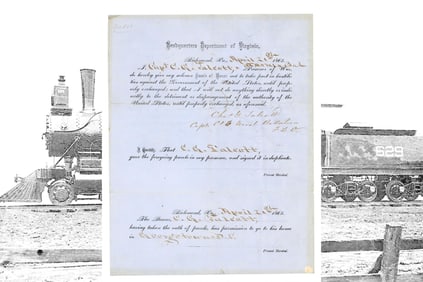 Headquarters Department of Virginia,
Richmond, Va., April 25th 1865
I, Capt. C. G. Talcott,
Prisoner of War,
do hereby give my solemn Parole of Honor not to take part in hostilities
against the Government of the United States until properly
exchanged; and that I will not do anything directly or indirectly
to the detriment or disparagement of the authority of the
United States, until properly exchanged as aforesaid.
Chas G Talcott
Capt.
I Certify, That C. G. Talcott,
gave the foregoing parole in my presence, and signed it in duplicate.
Provost Marshal.
Richmond, Va., April 25th 1865.
The Bearer, C. G. Talcott,
having taken the oath of parole, has permission to go to his home
in
Provost Marshal.
529